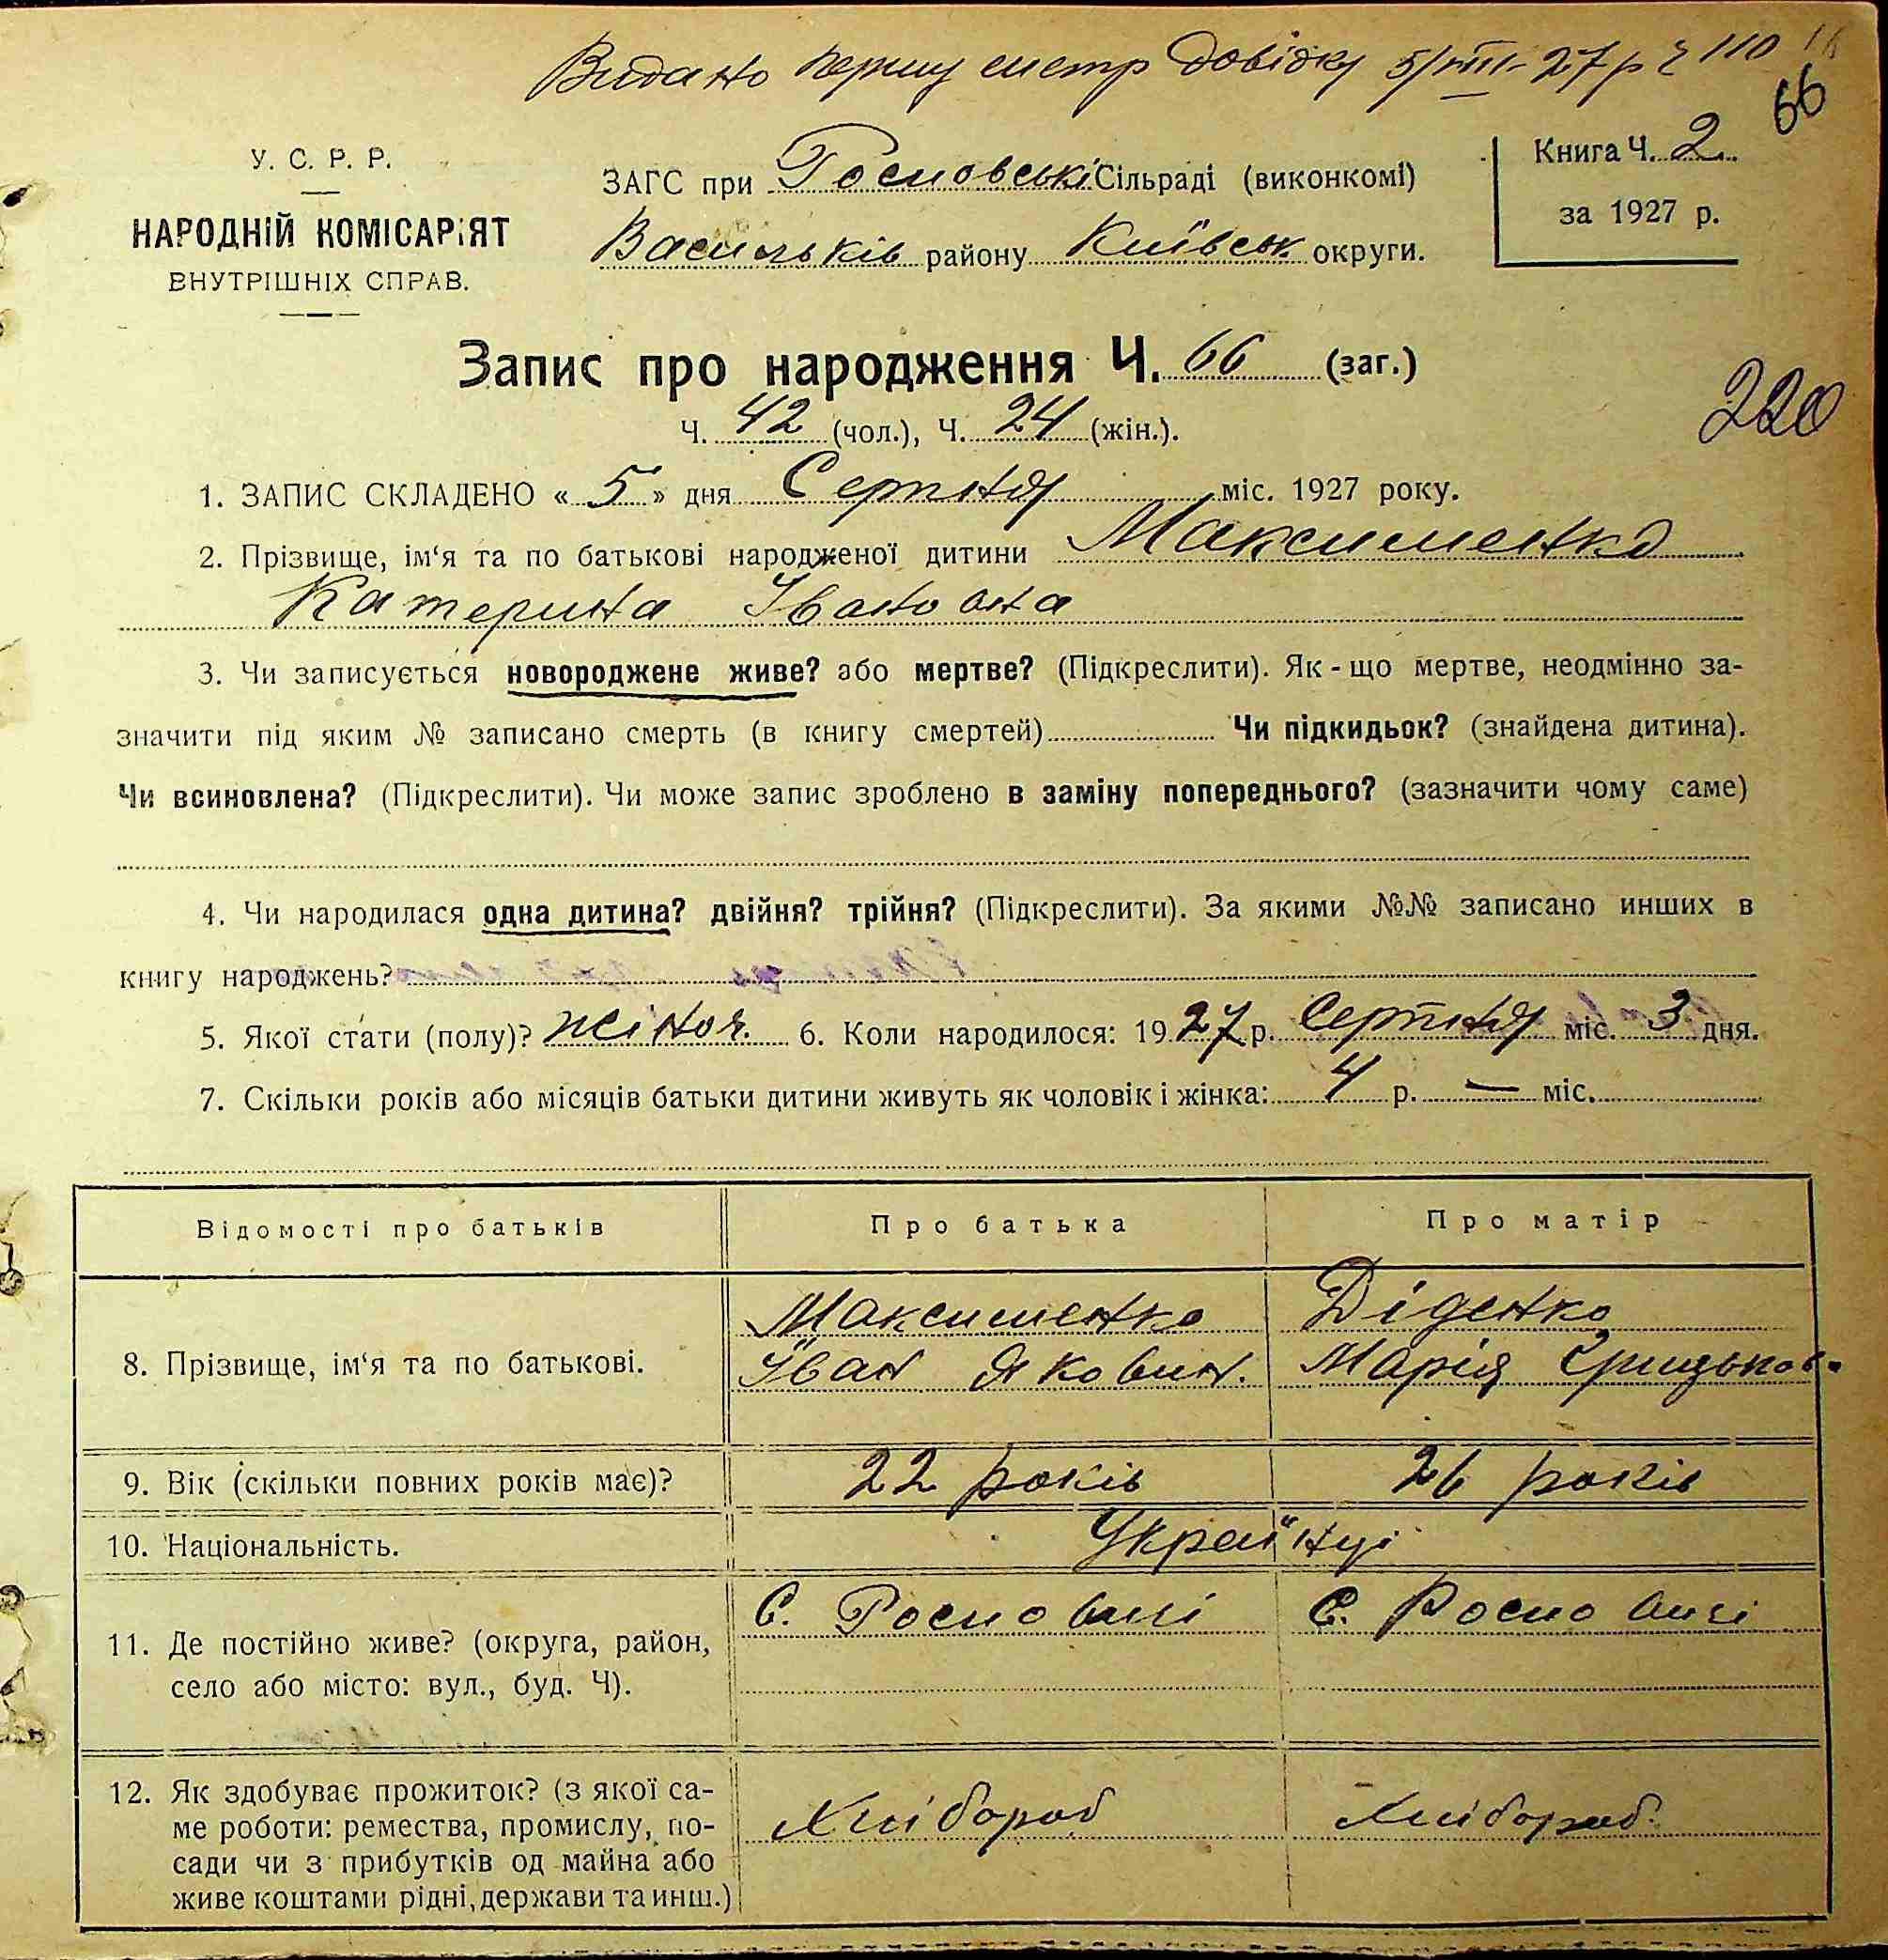 Видано першу систр довідку 5/VIII-27 р Ч 110
66
У. С. Р. Р.
НАРОДНІЙ КОМІСАРІЯТ
ВНУТРІШНІХ СПРАВ.
ЗАГС при Росновські Сільраді (виконкомі)
Васильків району Київськ округи.
Книга Ч. 2
за 1927 р.
Запис про народження Ч. 66 (заг.)
Ч. 42 (чол.), Ч. 24 (жін.).
220
1. ЗАПИС СКЛАДЕНО « 5 » дня Серпня міс. 1927 року.
2. Прізвище, ім‘я та по батькові народженої дитини Максименко
Катерина Івановна
3. Чи записується новороджене живе? або мертве? (Підкреслити). Як-що мертве, неодмінно за-
значити під яким № записано смерть (в книгу смертей) Чи підкидьок? (знайдена дитина).
Чи всиновлена? (Підкреслити). Чи може запис зроблено в заміну попереднього? (зазначити чому саме)
4. Чи народилася одна дитина? двійня? трійня? (Підкреслити). За якими №№ записано инших в
книгу народжень?
5. Якої стати (полу)? жіноч. 6. Коли народилося: 1927 р. Серпня міс. 3 дня.
7. Скільки років або місяців батьки дитини живуть як чоловік і жінка: 4 р. — міс.
Відомості про батьків Про батька Про матір
8. Прізвище, ім‘я та по батькові. Максименко Іван Якович. Діденко Марія Грицьков.
9. Вік (скільки повних років має)? 22 років 26 років
10. Національність. Українці
11. Де постійно живе? (округа, район, С. Росновичі С. Росновичі
село або місто: вул., буд. Ч).
12. Як здобуває прожиток? (з якої са-
ме роботи: ремества, промислу, по- Хлібороб Хлібороб.
сади чи з прибутків од майна або
живе коштами рідні, держави та инш.)